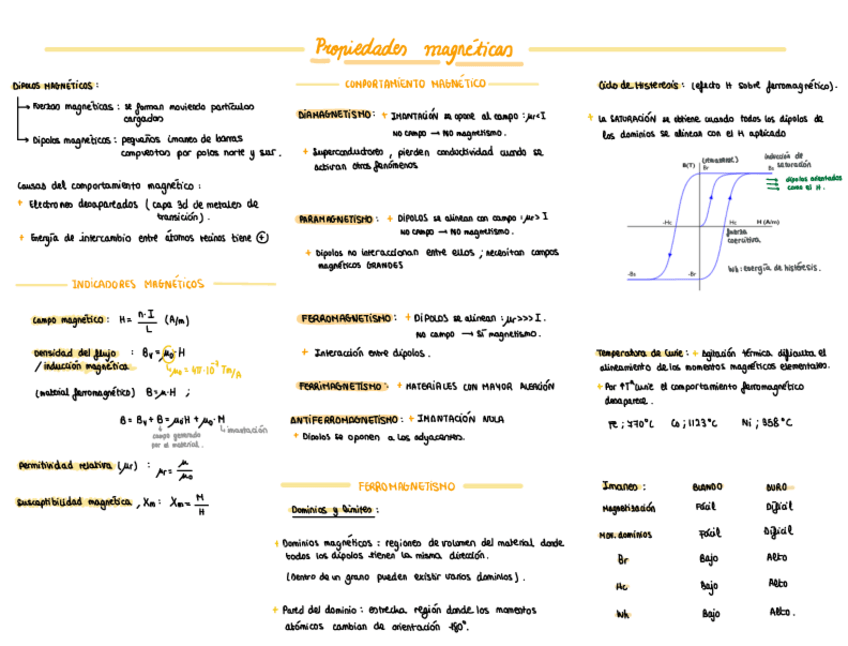 Propiedades magnéticas
DIPOLOS MAGNÉTICOS :
Fuerzas magnéticas : se forman moviendo partículas
cargadas
Dipolos magnéticos : pequeños imanes de barras
compuestos por polos norte y sur.
Causas del comportamiento magnético :
+ Electrones desapareados ( capa 3d de metales de
transición ) .
+ Energía de intercambio entre átomos vecinos tiene ⊕
INDICADORES MAGNÉTICOS
campo magnético : H = n·I / L (A/m)
Densidad del flujo : Bv = μ0·H
/ inducción magnética
μ0 = 4π·10⁻⁷ Tm/A
(material ferromagnético) B = μ·H ;
B = Bv + B = μ0H + μ0·M
campo generado
por el material.
imantación
permitividad relativa (μr) : μr = μ / μ0
susceptibilidad magnética , Xm : Xm = M / H
COMPORTAMIENTO MAGNÉTICO
DIAMAGNETISMO : + IMANTACIÓN se opone al campo : μr<1
NO campo → NO magnetismo.
+ Superconductores , pierden conductividad cuando se
activan otros fenómenos
PARAMAGNETISMO : + DIPOLOS se alinean con campo : μr > 1
NO campo → NO magnetismo.
+ Dipolos no interaccionan entre ellos ; necesitan campos
magnéticos GRANDES
FERROMAGNETISMO : + DIPOLOS se alinean : μr >>> 1 .
NO campo → SÍ magnetismo.
+ Interacción entre dipolos .
FERRIMAGNETISMO : + MATERIALES CON MAYOR ALEACIÓN
ANTIFERROMAGNETISMO : + IMANTACIÓN NULA
+ Dipolos se oponen a los adyacentes.
FERROMAGNETISMO
Dominios y límites :
+ Dominios magnéticos : regiones de volumen del material donde
todos los dipolos tienen la misma dirección .
(Dentro de un grano pueden existir varios dominios ) .
+ Pared del dominio : estrecha región donde los momentos
atómicos cambian de orientación 180°.
Ciclo de Histéresis : (efecto H sobre ferromagnético).
+ La SATURACIÓN se obtiene cuando todos los dipolos de
los dominios se alinean con el H aplicado
B(T)
Br
inducción de
saturación
Bs
dipolos orientados
como el H .
-Hc
Hc
H (A/m)
fuerza
coercitiva
-Bs
-Br
Wh : energía de histéresis .
Temperatura de Curie : + Agitación térmica dificulta el
alineamiento de los momentos magnéticos elementales.
+ Por ↑Tª Curie el comportamiento ferromagnético
desaparece .
Fe ; 770°C Co ; 1123°C Ni ; 358°C
Imanes : BLANDO DURO
Magnetización Fácil Difícil
Mov. dominios Fácil Difícil
Br Bajo Alto
Hc Bajo Alto
Wh Bajo Alto .